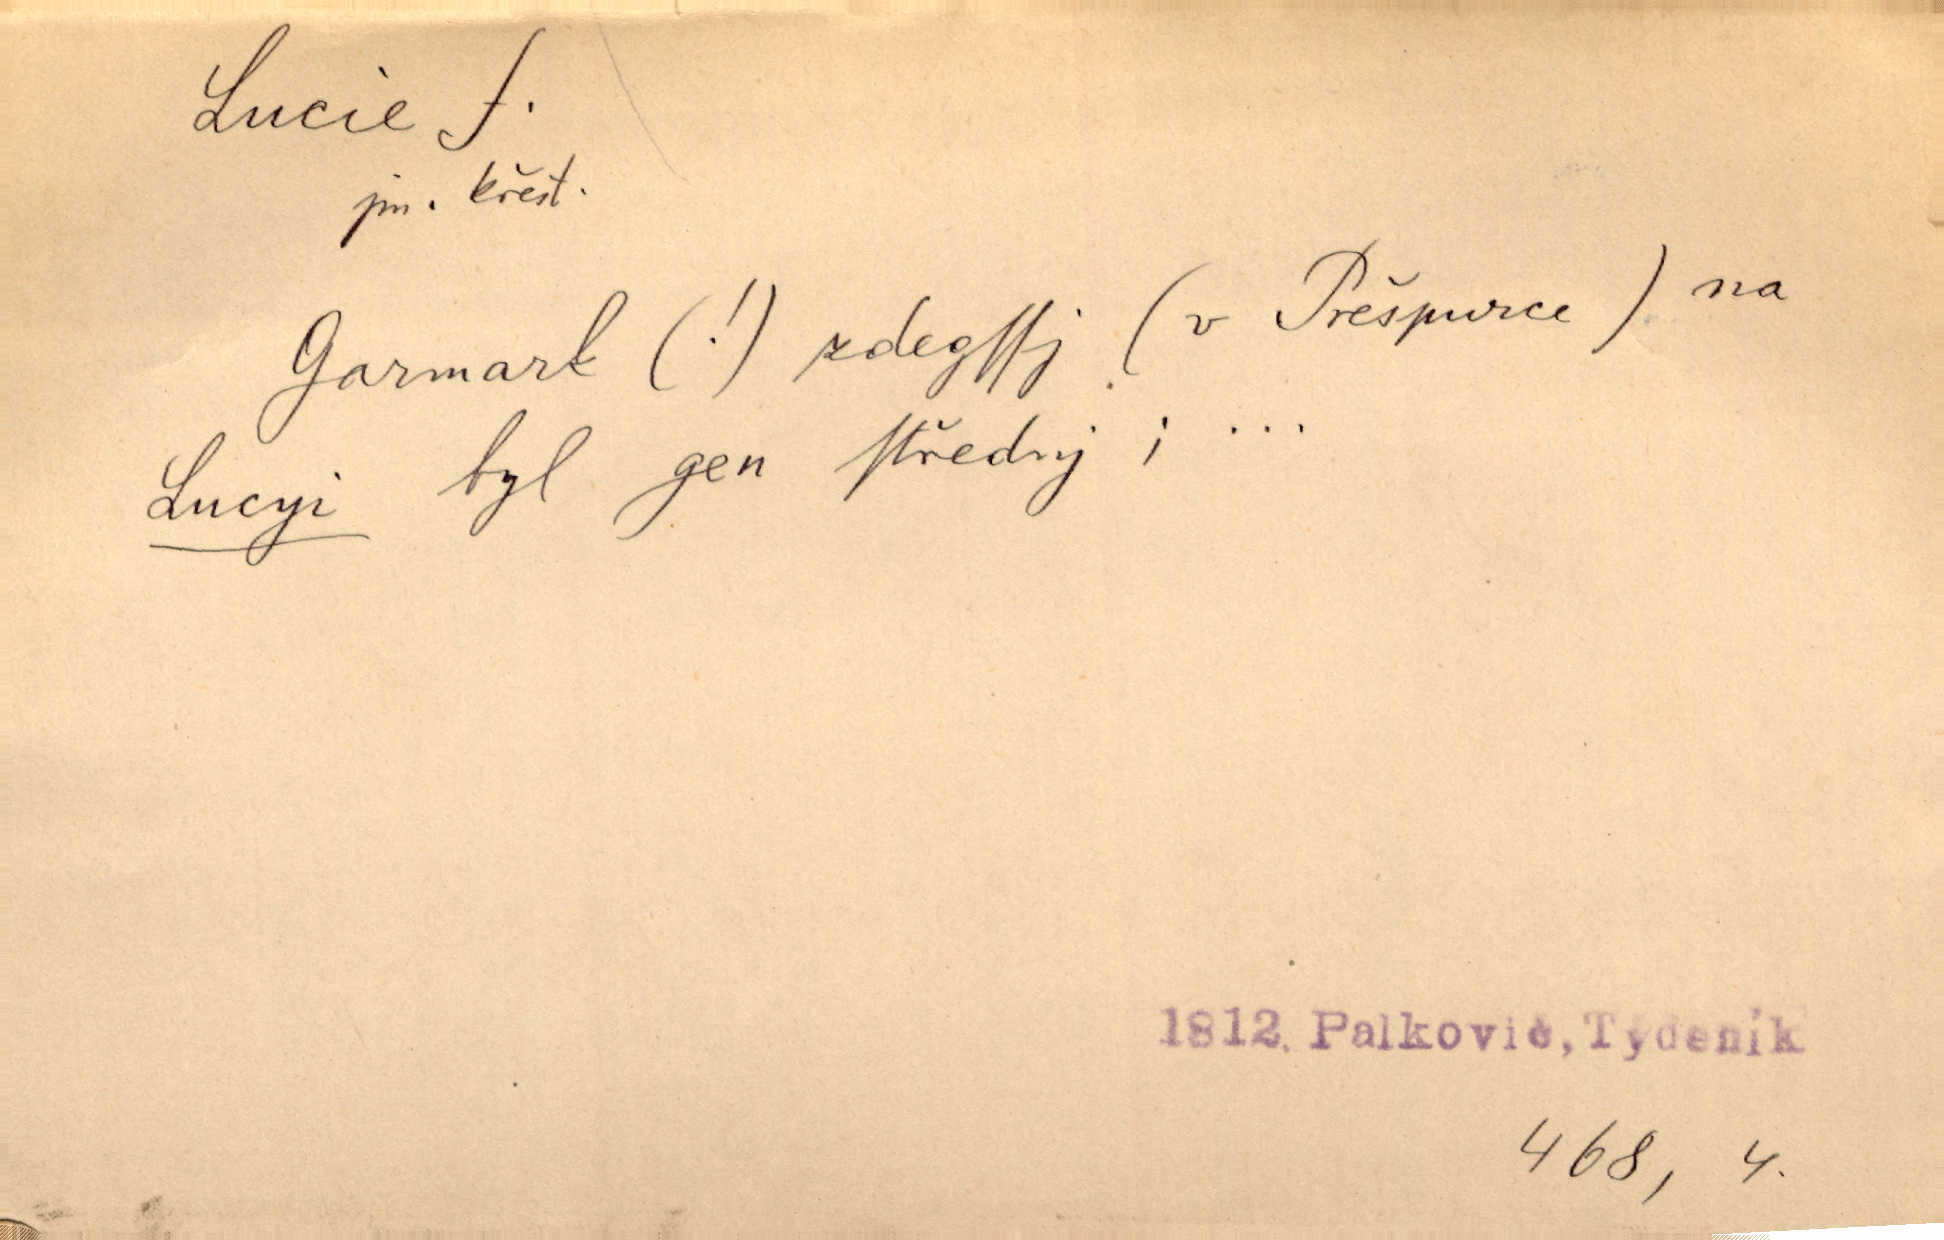 Lucie f.
jm. křest.
Garmark (!) zdegſſj (v Prešpurce) na
Lucyi byl gen ſtřednj ; ...
1812. Palkovič, Týdeník
468, 4.